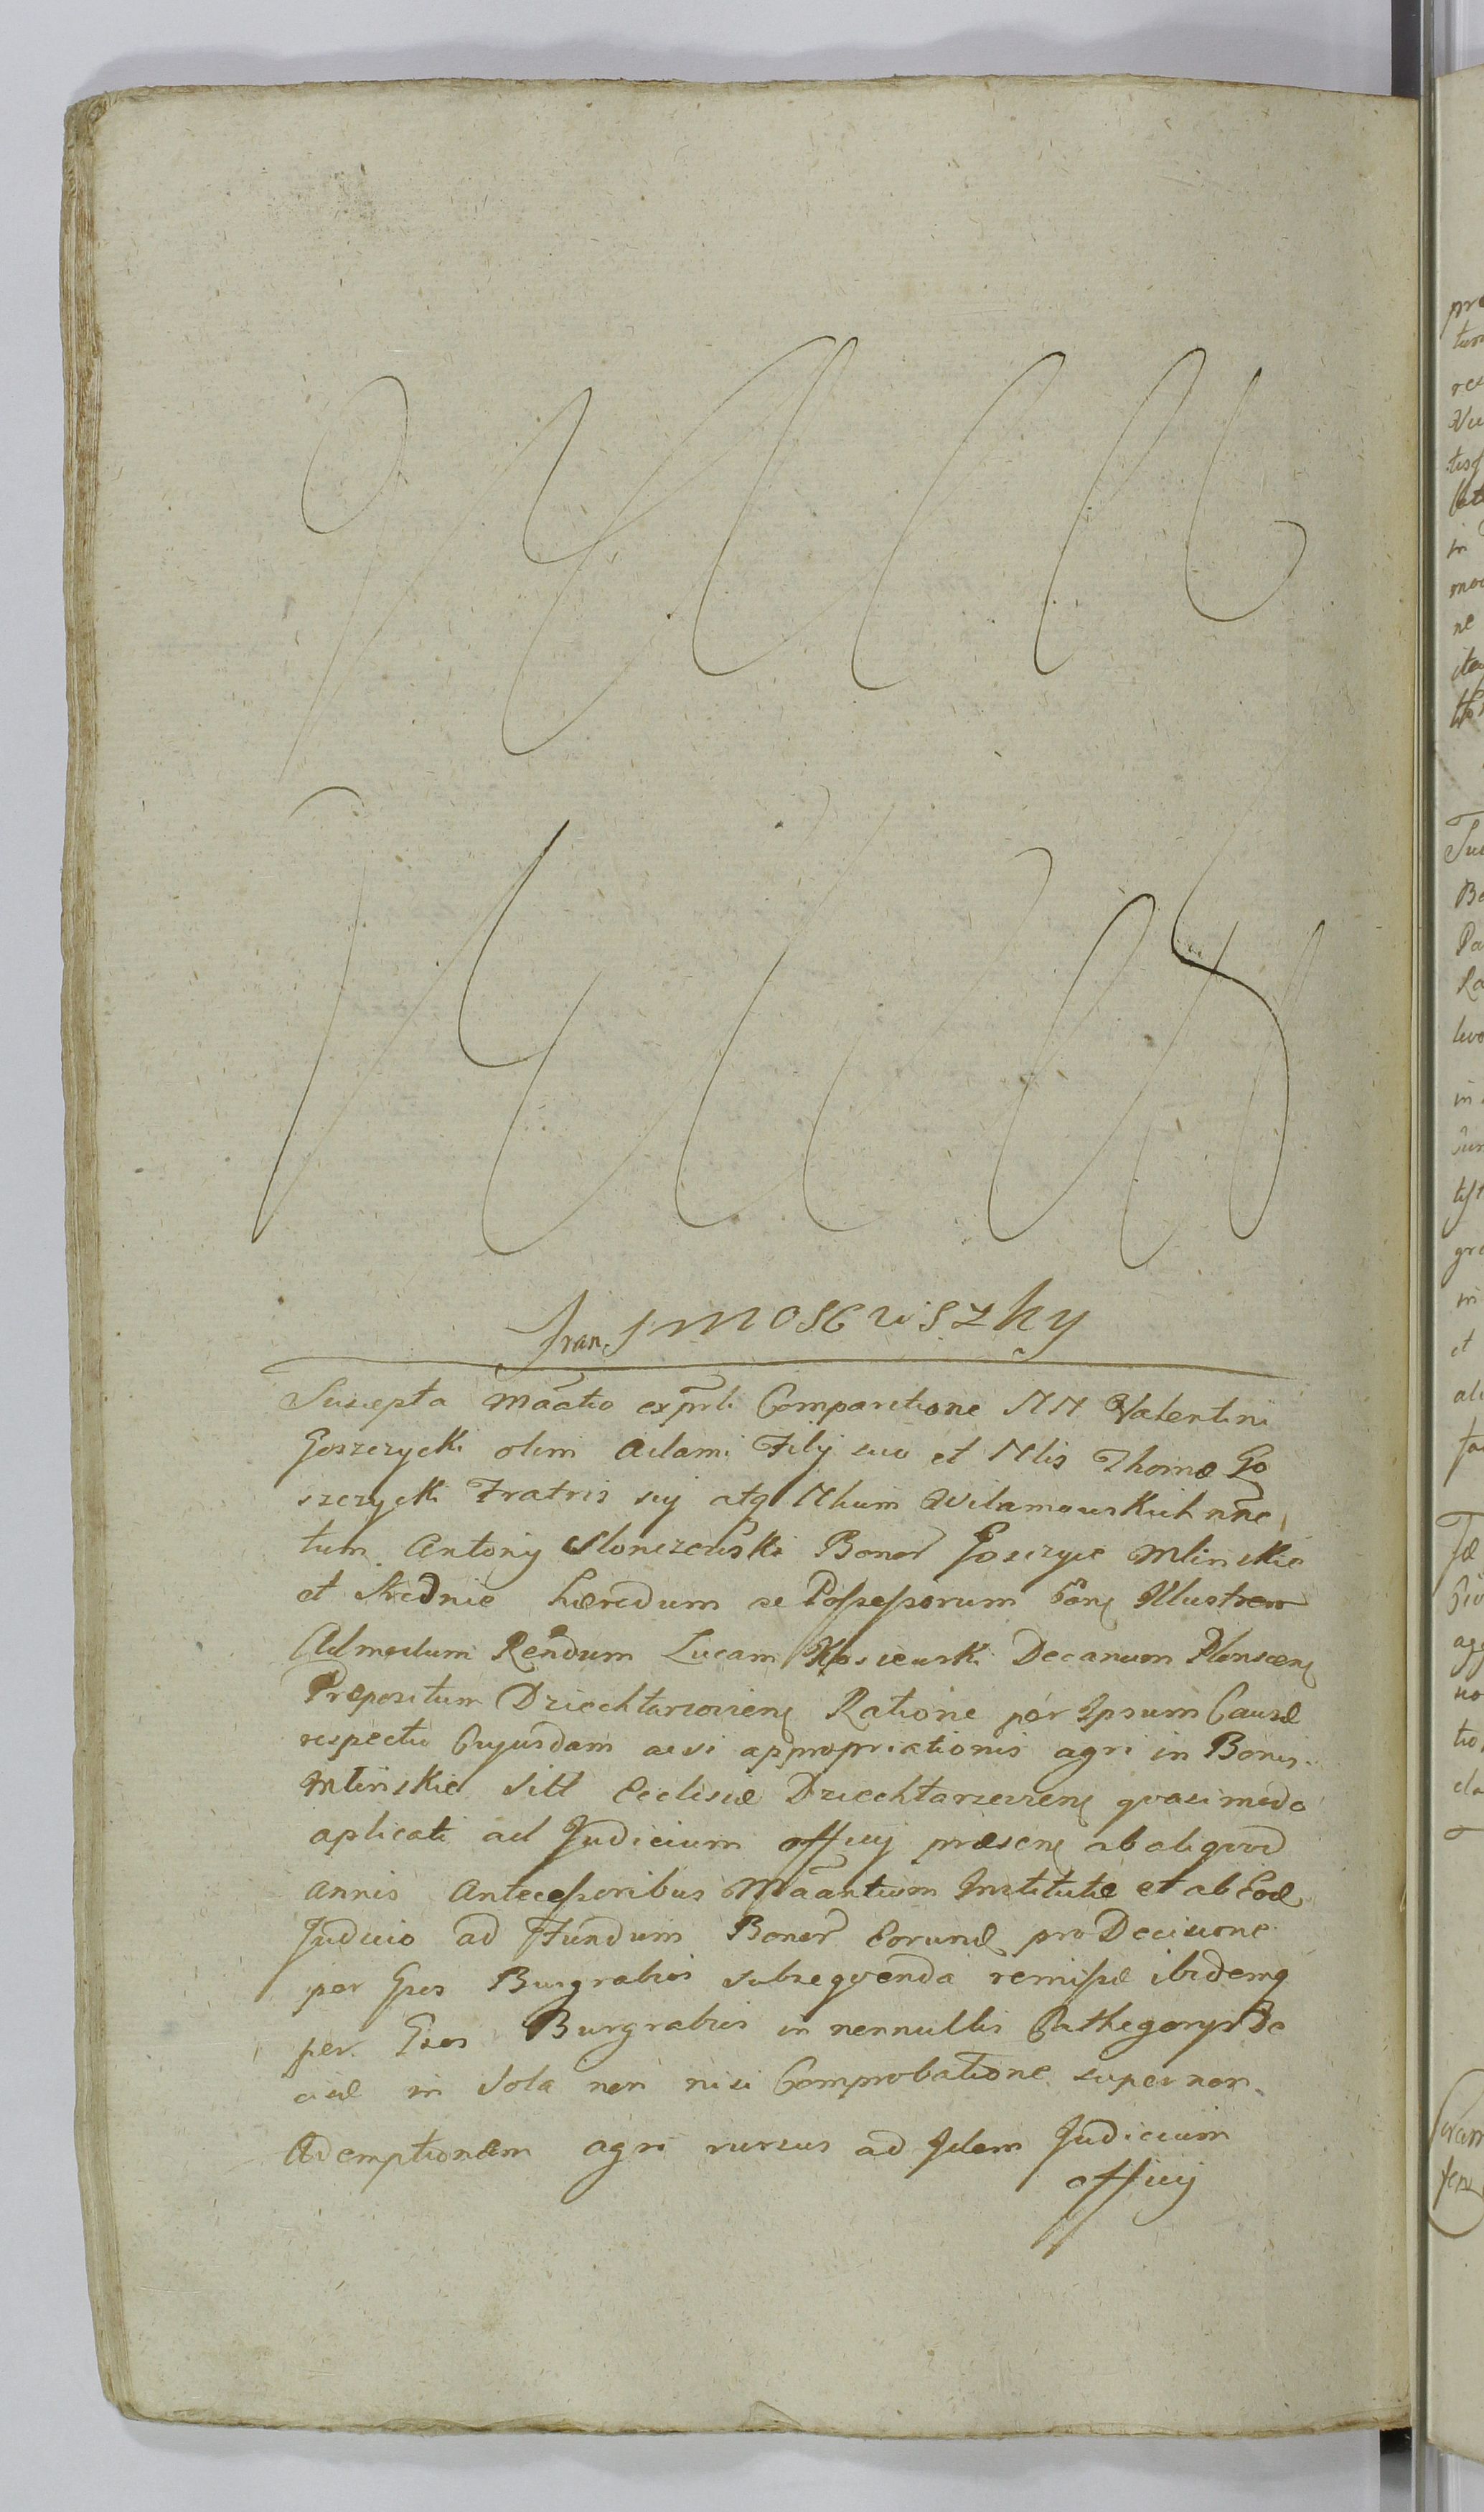 Fran. moscwiszky
Suscepta Maãtio exprli Comparitione NN Valentini
Goszczycki olim Adami Filij suo et Nlis Thomæ Go
szczycki Fratris sij atq Nlium Wilamowskich nne
tum Antonij Slonczewski Bonor Goszczyce Mlinskie
et Srednie hæredum ac Possessorum Conṣ Illustrem
Admodum Rendum Lucam Kosicwski Decanum Plonscenṣ
Præpositum Dziechtarzevienṣ Ratione per Ipsum Causæ
respectu Cujusdam ac si appropriationis agri in Bonis
Mlinskie Sitt Ecclesiæ Dziechtarzevienṣ quasi modo
aplicati ad Judicium officij præsenṣ ab aliquod
annis Antecessoribus Maãntium Institutæ et ab Eod
Judicio ad Fundum Bonor Eorund pro Decisione
per Gsos Burgrabios subsequenda remissæ ibidemq
per Gsos Burgrabios in nonnullis Cathegorijs De
cisæ in Sola non nisi Comprobatione super non
Ademptionem agri rursus ad Idem Judicium
officij